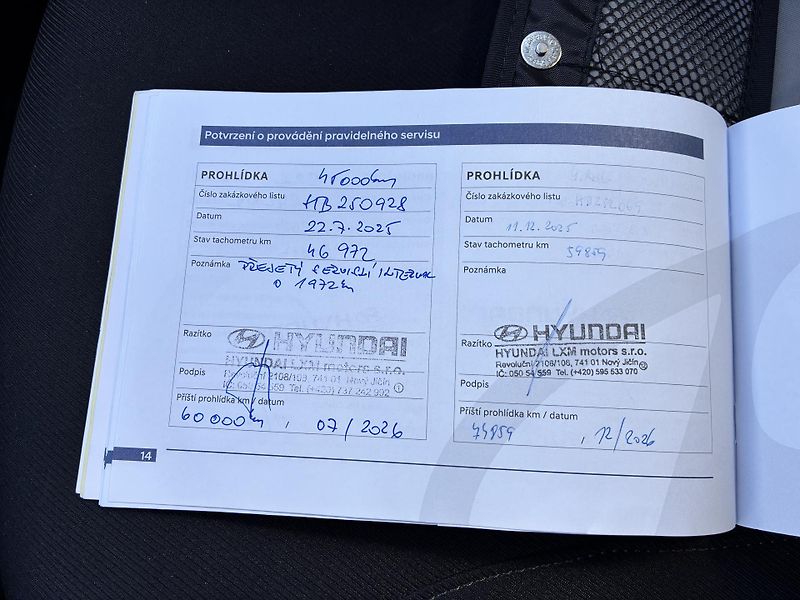 Potvrzení o provádění pravidelného servisu
PROHLÍDKA 45000km
Číslo zakázkového listu HB250928
Datum 22.7.2025
Stav tachometru km 46 972
Poznámka PŘEJETÝ SERVISNÍ INTERVAL
O 1972km
Razítko HYUNDAI
HYUNDAI LXM motors s.r.o.
Revoluční 2108/106, 741 01 Nový Jičín
Podpis IČ: 050 54 559 Tel. (+420) 737 242 992
Příští prohlídka km / datum
60 000km , 07/2026
PROHLÍDKA
Číslo zakázkového listu
Datum 11.12.2025
Stav tachometru km 59859
Poznámka
Razítko HYUNDAI
HYUNDAI LXM motors s.r.o.
Revoluční 2108/106, 741 01 Nový Jičín
IČ: 050 54 559 Tel. (+420) 595 533 070
Podpis
Příští prohlídka km / datum
74859 , 12/2026
14